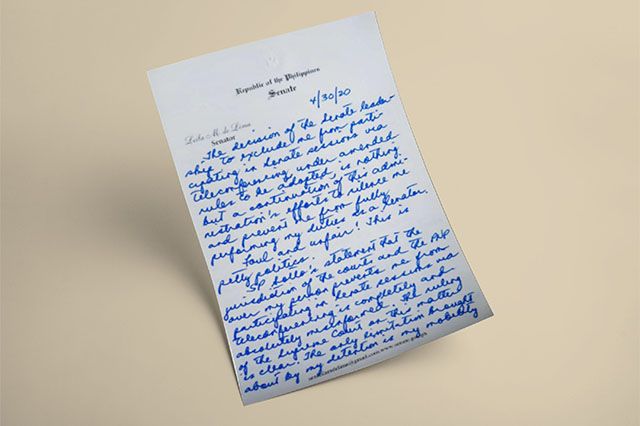 Republic of the Philippines
Senate
4/30/20
Leila M. de Lima
Senator
The decision of the Senate leader-
ship to exclude me from parti-
cipating in Senate sessions via
teleconferencing under amended
rules to be adopted is nothing
but a continuation of this admi-
nistration's efforts to silence me
and prevent me from fully
performing my duties as a Senator.
Foul and unfair! This is
petty politics.
SP Sotto's statement that the
jurisdiction of the courts and the PNP
over my person prevents me from
participating in Senate sessions via
teleconferencing is completely and
absolutely misinformed. The ruling
of the Supreme Court on this matter
is clear. The only limitation brought
about by my detention is my mobility